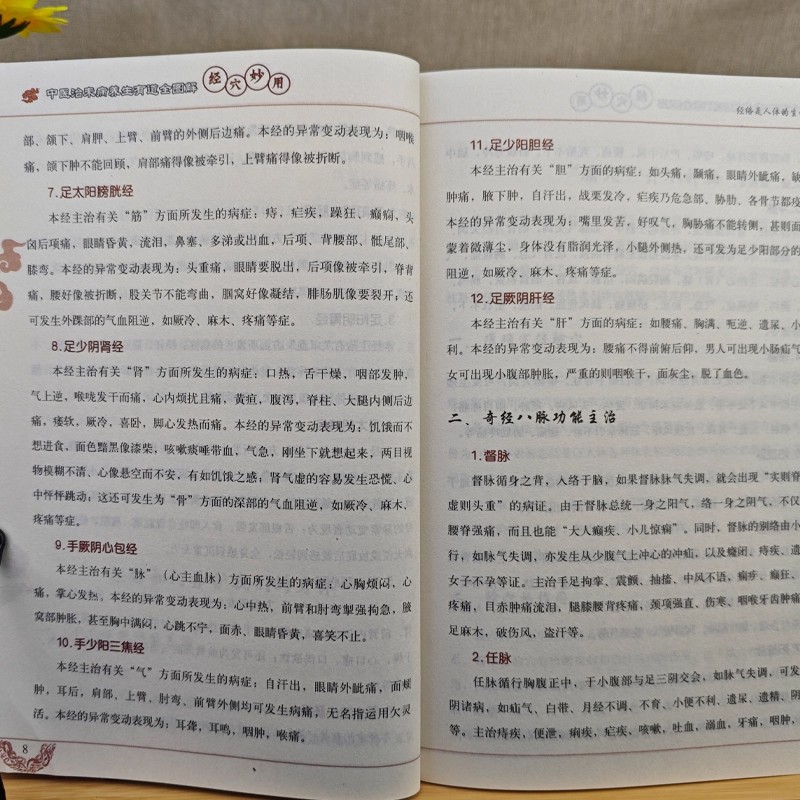 中医治未病养生有道全图解 经穴妙用
部、颌下、肩胛、上臂、前臂的外侧后边痛。本经的异常变动表现为：咽喉
痛，颌下肿不能回顾、肩部痛得像被牵引，上臂痛得像被折断。
7.足太阳膀胱经
本经主治有关“筋”方面所发生的病症：痔，疟疾，躁狂、癫痫，头
囟后项痛，眼睛昏黄，流泪，鼻塞、多涕或出血，后项、背腰部、骶尾部、
膝弯。本经的异常变动表现为：头重痛，眼睛要脱出，后项像被牵引，脊背
痛，腰好像被折断，股关节不能弯曲，腘窝好像凝结，腓肠肌像要裂开；还
可发生外踝部的气血阻逆，如厥冷、麻木、疼痛等症。
8.足少阴肾经
本经主治有关“肾”方面所发生的病症：口热，舌干燥，咽部发肿，
气上逆，喉咙发干而痛，心内烦扰且痛，黄疸，腹泻，脊柱、大腿内侧后边
痛，痿软，厥冷，喜卧，脚心发热而痛。本经的异常变动表现为：饥饿而不
想进食，面色黯黑像漆柴，咳嗽痰唾带血，气急，刚坐下就想起来，两目视
物模糊不清、心像悬空而不安，有如饥饿之感；肾气虚的容易发生恐慌、心
中怦怦跳动；这还可发生为“骨”方面的深部的气血阻逆，如厥冷、麻木、
疼痛等症。
9.手厥阴心包经
本经主治有关“脉”（心主血脉）方面所发生的病症：心胸烦闷，心
痛，掌心发热。本经的异常变动表现为：心中热，前臂和肘弯掣强拘急，腋
窝部肿胀，甚至胸中满闷，心跳不宁，面赤、眼睛昏黄，喜笑不止。
10.手少阳三焦经
本经主治有关“气”方面所发生的病症：自汗出，眼睛外眦痛，面颊
肿，耳后，肩部、上臂、肘弯、前臂外侧均可发生病痛，无名指运用欠灵
活。本经的异常变动表现为：耳聋，耳鸣，咽肿，喉痛。
8
经络是人体的生
11.足少阳胆经
本经主治有关“胆”方面的病症：如头痛，颞痛，眼睛外眦痛，缺
肿痛，腋下肿，自汗出，战栗发冷，疟疾乃危急部、胁肋、各骨节都疫
本经的异常变动表现为：嘴里发苦，好叹气，胸胁痛不能转侧，甚则面
蒙着微薄尘，身体没有脂润光泽，小腿外侧热，还可发为足少阳部分的
阻逆，如厥冷、麻木、疼痛等症。
12.足厥阴肝经
本经主治有关“肝”方面的病症：如腰痛，胸满、呃逆、遗尿、小
利。本经的异常变动表现为：腰痛不得前俯后仰，男人可出现小肠疝气
女可出现小腹部肿胀，严重的则咽喉干，面灰尘，脱了血色。
二、奇经八脉功能主治
1.督脉
督脉循身之背，入络于脑，如果督脉脉气失调，就会出现“实则脊
虚则头重”的病证。由于督脉总统一身之阳气，络一身之阴气，不仅
腰脊强痛，而且也能“大人癫疾、小儿惊痫”。同时，督脉的别络由小
行，如脉气失调，亦发生从少腹气上冲心的冲疝，以及癃闭、痔疾、遗
女子不孕等证。主治手足拘挛、震颤、抽搐、中风不语，痫疾、癫狂、
疼痛，目赤肿痛流泪，腿膝腰背疼痛，颈项强直、伤寒、咽喉牙齿肿痛
足麻木，破伤风，盗汗等。
2.任脉
任脉循行胸腹正中，于小腹部与足三阴交会，如脉气失调，可发
阴诸病，如疝气、白带、月经不调、不育、小便不利、遗尿、遗精、阴
等。主治痔疾，便泄，痢疾，疟疾，咳嗽，吐血，溺血，牙痛，咽肿，